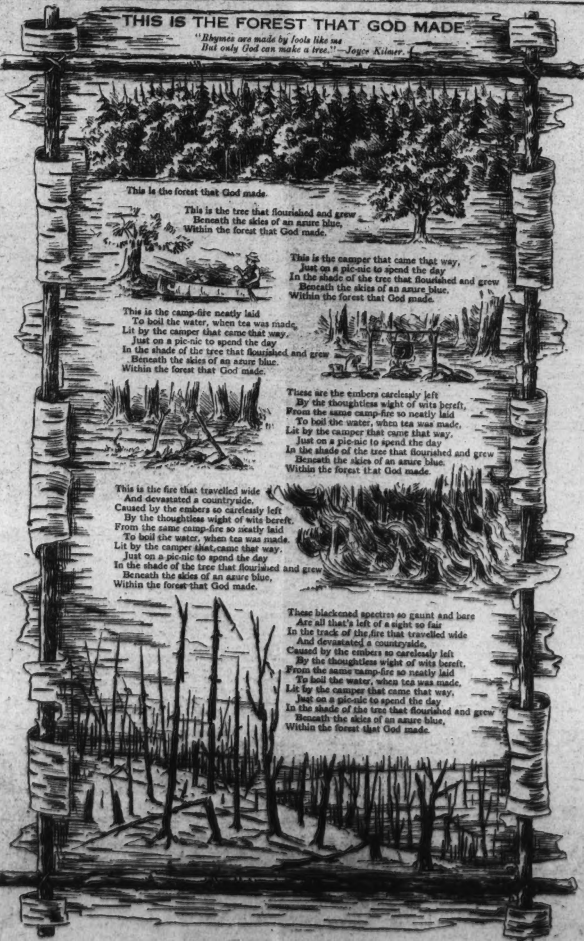 THIS IS THE FOREST THAT GOD MADE
"Rhymes are made by fools like me
But only God can make a tree."—Joyce Kilmer.
This is the forest that God made.
This is the tree that flourished and grew
Beneath the skies of an azure blue,
Within the forest that God made.
This is the camper that came that way,
Just on a pic-nic to spend the day
In the shade of the tree that flourished and grew
Beneath the skies of an azure blue,
Within the forest that God made.
This is the camp-fire neatly laid
To boil the water, when tea was made,
Lit by the camper that came that way,
Just on a pic-nic to spend the day
In the shade of the tree that flourished and grew
Beneath the skies of an azure blue.
Within the forest that God made.
These are the embers carelessly left
By the thoughtless wight of wits bereft,
From the same camp-fire so neatly laid
To boil the water, when tea was made,
Lit by the camper that came that way,
Just on a pic-nic to spend the day
In the shade of the tree that flourished and grew
Beneath the skies of an azure blue,
Within the forest that God made.
This is the fire that travelled wide
And devastated a countryside,
Caused by the embers so carelessly left
By the thoughtless wight of wits bereft,
From the same camp-fire so neatly laid
To boil the water, when tea was made.
Lit by the camper that came that way.
Just on a pic-nic to spend the day
In the shade of the tree that flourished and grew
Beneath the skies of an azure blue,
Within the forest that God made.
These blackened spectres so gaunt and bare
Are all that's left of a sight so fair
In the track of the fire that travelled wide
And devastated a countryside,
Caused by the embers so carelessly left
By the thoughtless wight of wits bereft,
From the same camp-fire so neatly laid
To boil the water, when tea was made,
Lit by the camper that came that way,
Just on a pic-nic to spend the day
In the shade of the tree that flourished and grew
Beneath the skies of an azure blue,
Within the forest that God made.